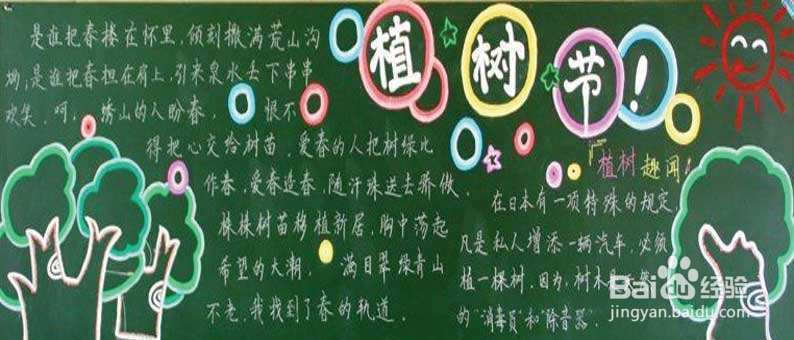 植树节!
是谁把春搂在怀里,倾刻撒满荒山沟
坳;是谁把春担在肩上,引来泉水丢下串串
欢笑。呵,绣山的人盼春, 恨不
得把心交给树苗,爱春的人把树绿比
作春,爱春造春,随汗珠送去骄傲,
株株树苗移植新居,胸中荡起
希望的大潮, 满目翠绿青山
不老,我找到了春的轨道。
『植树趣闻』
在日本有一项特殊的规定,
凡是私人增添一辆汽车,必须
植一棵树,因为,树木是
的"消毒员"和"除音器。
Baidu 经验
jingyan.baidu.com